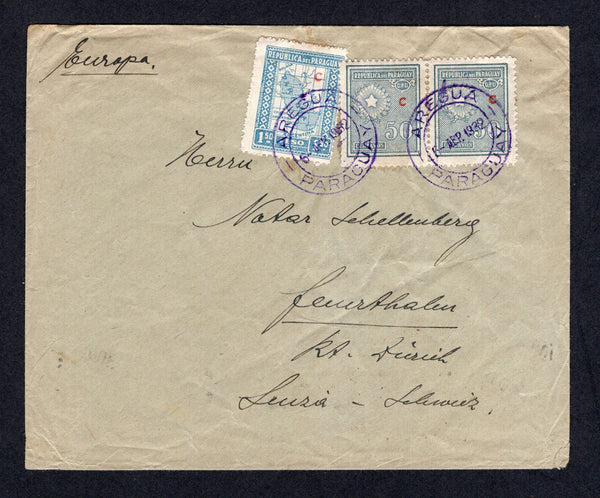 Europa.
REPUBLICA DEL PARAGUAY
C
1.50 PESO
REPUBLICA DEL PARAGUAY
C
50
REPUBLICA DEL PARAGUAY
C
50
AREGUA
1932
PARAGUAY
AREGUA
1932
PARAGUAY
Herrn
Notar Schellenberg
Feuerthalen
Kt. Zürich
Suiza - Schweiz.